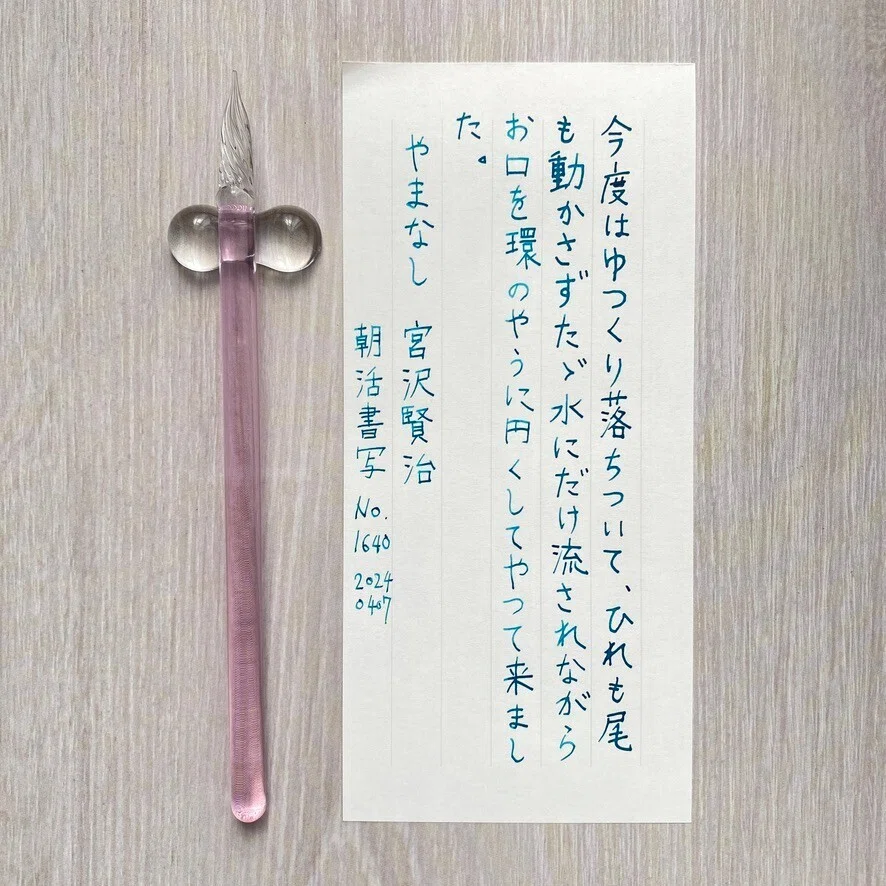 今度はゆつくり落ちついて、ひれも尾
も動かさずたゞ水にだけ流されながら
お口を環のやうに円くしてやつて来まし
た。
やまなし 宮沢賢治
朝活書写 No. 1640 2024 0407